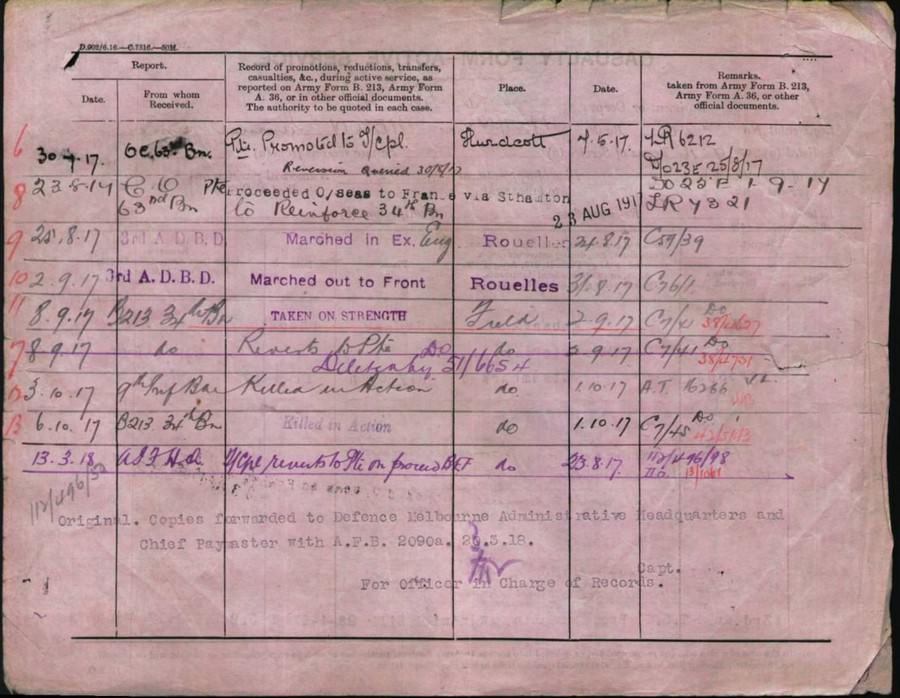 D.902/6.16.—C.7316.—50M.
Report.
Date.
From whom Received.
Record of promotions, reductions, transfers, casualties, &c., during active service, as reported on Army Form B. 213, Army Form A. 36, or in other official documents. The authority to be quoted in each case.
Place.
Date.
Remarks. taken from Army Form B. 213, Army Form A. 36, or other official documents.
6 30.7.17. OC. 63rd Bn. Pte. Promoted to T/Cpl. Hurdcott 7.5.17. LR 6212
Reversion queried DO23E 25/8/17
8 23.8.17 C.O. Pte Proceeded O/seas to France via Sthamton DO 1.9.17
63nd Bn to Reinforce 34th Bn 23 AUG 1917 LR 7321
9 25.8.17 3rd A.D.B.D. Marched in Ex. Eng. Rouelles 24.8.17 C59/39
10 2.9.17 3rd A.D.B.D. Marched out to Front Rouelles 31.8.17 C76/1
11 8.9.17 B213 34th Bn TAKEN ON STRENGTH Field 2.9.17 C7/41 DO
7 8.9.17 do Reverts to Pte DO do 9.17 C7/41 DO
Deleted by 51/6654
3.10.17 9th Inf Bde Killed in Action do 1.10.17 A.T. 16266
13 6.10.17 B213 34th Bn Killed in Action do 1.10.17 C7/45 DO
13.3.18 A.I.F. H.Q. T/Cpl reverts to Pte on proceed BEF do 23.8.17. 112/496/98
112/496/
Original. Copies forwarded to Defence Melbourne Administrative Headquarters and
Chief Paymaster with A.F.B. 2090a. .3.18.
Capt.
For Officer in Charge of Records.